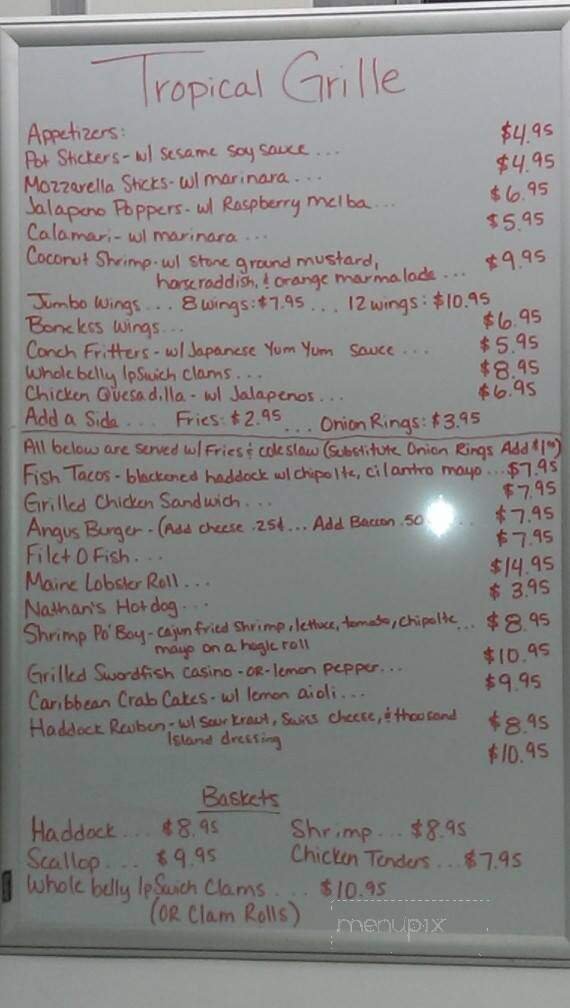 Tropical Grille
Appetizers:
Pot Stickers - w/ sesame soy sauce ... $4.95
Mozzarella Sticks - w/ marinara ... $4.95
Jalapeno Poppers - w/ Raspberry melba ... $6.95
Calamari - w/ marinara ... $5.95
Coconut Shrimp - w/ stone ground mustard,
horseraddish, & orange marmalade ... $9.95
Jumbo Wings ... 8 wings: $7.95 ... 12 wings: $10.95
Boneless Wings ... $6.95
Conch Fritters - w/ Japanese Yum Yum Sauce ... $5.95
Whole belly IpSwich clams ... $8.95
Chicken Quesadilla - w/ Jalapenos ... $6.95
Add a Side ... Fries: $2.95 ... Onion Rings: $3.95
All below are served w/ Fries & coleslaw (Substitute Onion Rings Add $1.00)
Fish Tacos - blackened haddock w/ chipolte, cilantro mayo ... $7.95
Grilled Chicken Sandwich ... $7.95
Angus Burger - (Add cheese .25¢ ... Add Bacon .50 ... $7.95
Filet O Fish ... $7.95
Maine Lobster Roll ... $14.95
Nathan's Hotdog ... $3.95
Shrimp Po' Boy - cajun fried shrimp, lettuce, tomato, chipolte ... $8.95
mayo on a hogie roll
Grilled Swordfish casino - OR - lemon pepper ... $10.95
Caribbean Crab Cakes - w/ lemon aioli ... $9.95
Haddock Reuben - w/ sour kraut, Swiss cheese, & thousand $8.95
Island dressing $10.95
Baskets
Haddock ... $8.95 Shrimp ... $8.95
Scallop ... $9.95 Chicken Tenders ... $7.95
Whole belly IpSwich Clams ... $10.95
(OR Clam Rolls)
menupix